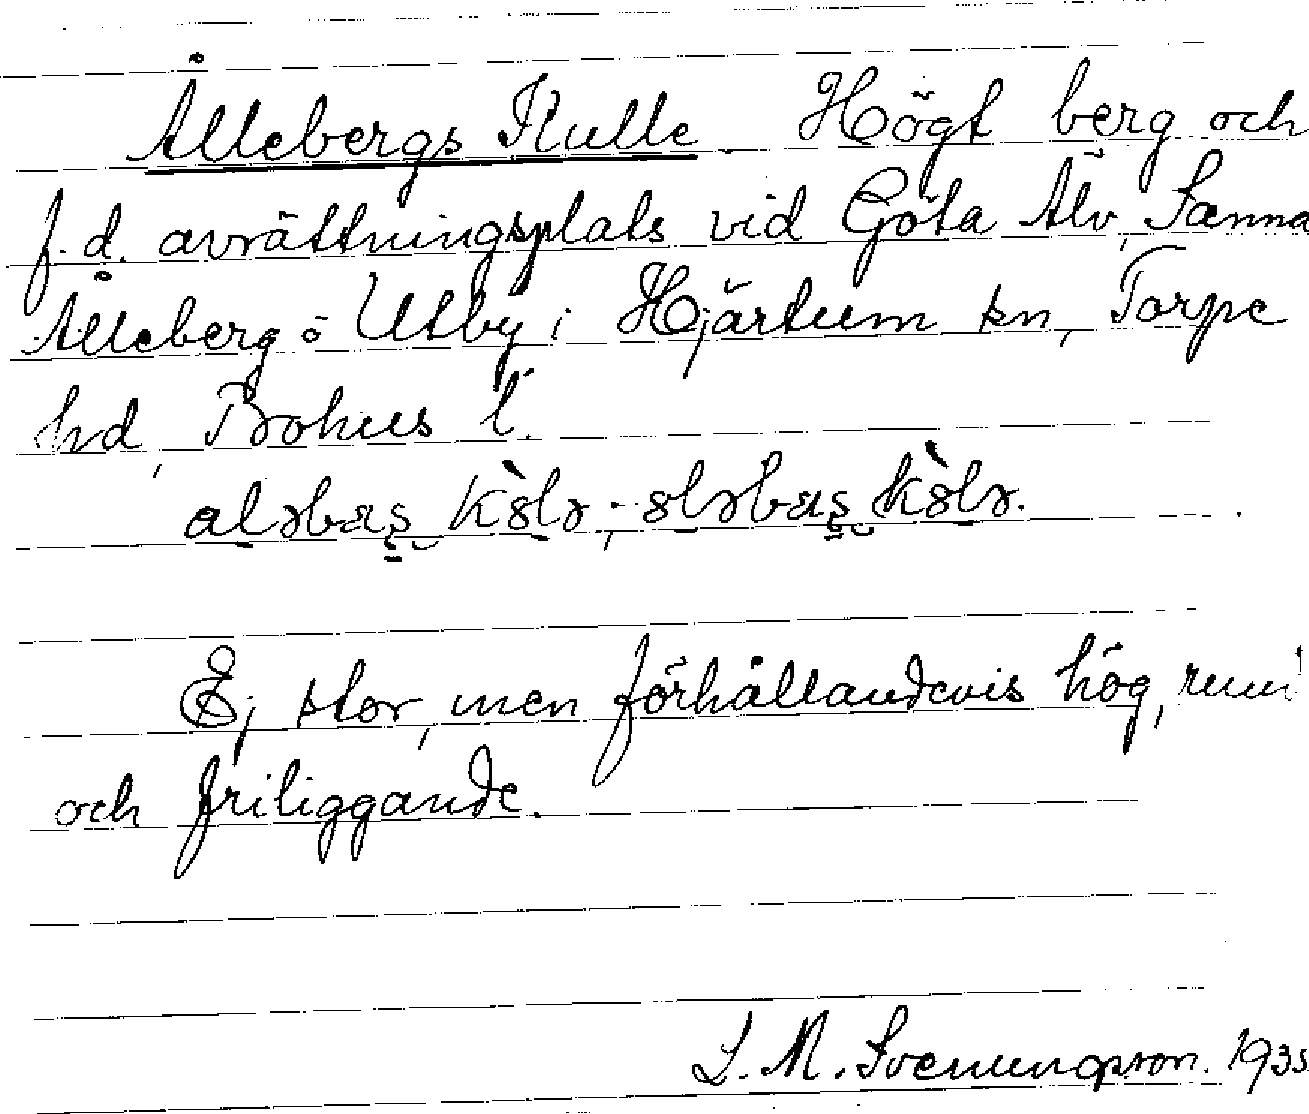 Ållebergs Kulle. Högt berg och
f.d. avrättningsplats vid Göta Älv, Sanna
Ålleberg o Utby i Hjärtum sn, Torpe
hd, Bohus l.
Ej stor, men förhållandevis hög,
och friliggande.
L. M. Svenungsson. 1935